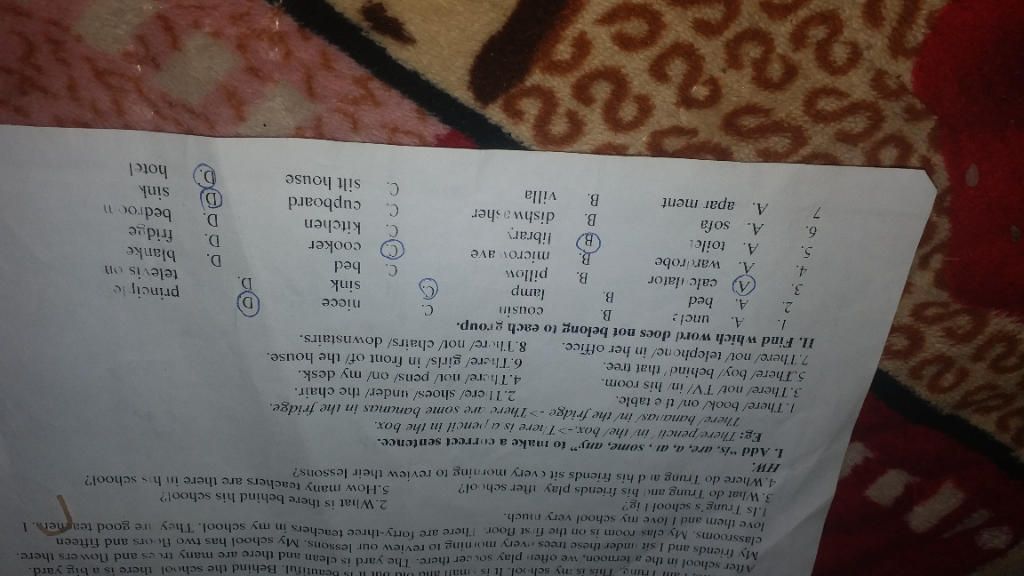 I am Trung. This is my school. It is small and old but it is beautiful. Behind the school there is a big yard.
After school in the afternoon, we often play soccer there. The yard is clean and there are many trees and flowers there.
My friends and I sit under these trees every morning to review our lessons. My school has two floors and fifteen
classrooms. My classroom is on the first floor. There are forty-three teachers in my school. They are good teachers. I
love them and I love my school very much.
1. Is Trung's school big? 2. What is there behind his school?
3. What do Trung and his friends play after school? 5. How many teachers are there in his school?
4. Where do Trung and his friends sit every morning to review their lessons?
HW:
I. Add "is, are, a, an, some, any" to make a correct sentence.
Eg: There pencil/ in/ the/ box.->There is a pencil in the box.
There/ bananas/ in/ the fridge ->There are some bananas in the fridge.
1.There/ book/ on/ the table. 2.There/ shoes/ under/ the chair.
3.There/ not/ TV/ in/ his room. 4.There/ not/ pens/ on/ my desk.
5.There/ boy/ behind/ that tree. 6.There/ girls/ in front of/ the house.
7.There/ not/ telephone/ in her office. 8.There/ not/ chairs/ downstairs.
II. Find which word does not belong to each group.
1. A. uncle B. cousin C. niece D. principle
2. A. bed B. lamp C. sink D. television
3. A. calculator B. pillow C. bed D. blanke
4. A. wardrobe B. microwave C. cooker D. fridge
5. A. toilet B. library C. kitchen D. bedroom
6. A. sofa B. dishwasher C. cupboard D. sink
7 A. apartment B. villa C. silt house D. hotel